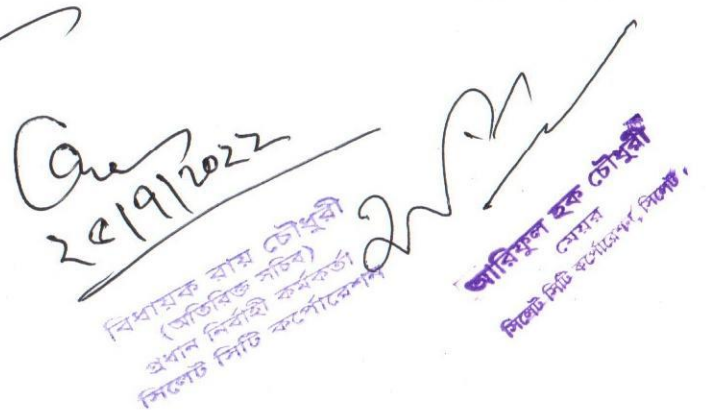 ২৫/9/2022
বিধায়ক রায় চৌধুরী
(অতিরিক্ত সচিব)
প্রধান নির্বাহী কর্মকর্তা
সিলেট সিটি কর্পোরেশন
আরিফুল হক চৌধুরী
মেয়র
সিলেট সিটি কর্পোরেশন, সিলেট.